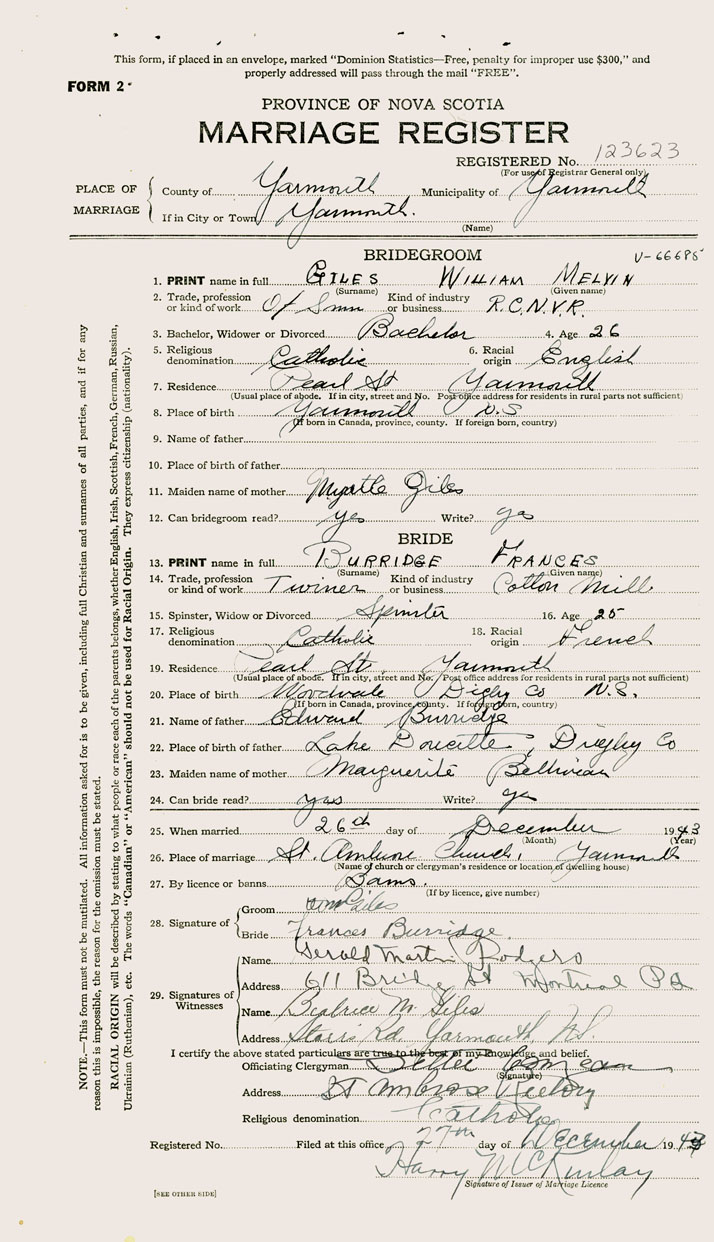 This form, if placed in an envelope, marked "Dominion Statistics—Free, penalty for improper use $300," and
properly addressed will pass through the mail "FREE".
FORM 2
PROVINCE OF NOVA SCOTIA
MARRIAGE REGISTER
REGISTERED No. 123623
(For use of Registrar General only)
PLACE OF MARRIAGE
County of Yarmouth Municipality of Yarmouth
If in City or Town Yarmouth.
(Name)
BRIDEGROOM U-66685
1. PRINT name in full GILES WILLIAM MELVIN
(Surname) (Given name)
2. Trade, profession or kind of work Of Smn Kind of industry or business R.C.N.V.R.
3. Bachelor, Widower or Divorced Bachelor 4. Age 26
5. Religious denomination Catholic 6. Racial origin English
7. Residence Pearl St Yarmouth
(Usual place of abode. If in city, street and No. Post office address for residents in rural parts not sufficient)
8. Place of birth Yarmouth N.S
(If born in Canada, province, county. If foreign born, country)
9. Name of father
10. Place of birth of father
11. Maiden name of mother Myrtle Giles
12. Can bridegroom read? yes Write? yes
BRIDE
13. PRINT name in full BURRIDGE FRANCES
(Surname) (Given name)
14. Trade, profession or kind of work Twiner Kind of industry or business Cotton Mill
15. Spinster, Widow or Divorced Spinster 16. Age 25
17. Religious denomination Catholic 18. Racial origin French
19. Residence Pearl St. Yarmouth
(Usual place of abode. If in city, street and No. Post office address for residents in rural parts not sufficient)
20. Place of birth Woodvale Digby Co N.S.
(If born in Canada, province, county. If foreign born, country)
21. Name of father Edward Burridge
22. Place of birth of father Lake Doucette, Digby Co
23. Maiden name of mother Marguerite
24. Can bride read? yes Write? yes
25. When married 26th day of December 1943
(Month) (Year)
26. Place of marriage St. Ambrose Church, Yarmouth
(Name of church or clergyman's residence or location of dwelling house)
27. By licence or banns Banns.
(If by licence, give number)
28. Signature of
Groom Wm Giles
Bride Frances Burridge.
29. Signatures of Witnesses
Name Gerald Martin Rodgers
Address 611 Bridge St Montreal PQ
Name Beatrice M. Giles
Address Starrs Rd. Yarmouth, N.S.
I certify the above stated particulars are true to the best of my knowledge and belief.
Officiating Clergyman Comeau
(Signature)
Address St Ambrose Rectory
Religious denomination Catholic
Registered No. Filed at this office 27th day of December 1943
Harry McKinlay
Signature of Issuer of Marriage Licence
[SEE OTHER SIDE]
NOTE.—This form must not be mutilated. All information asked for is to be given, including full Christian and surnames of all parties, and if for any
reason this is impossible, the reason for the omission must be stated.
RACIAL ORIGIN will be described by stating to what people or race each of the parents belongs, whether English, Irish, Scottish, French, German, Russian,
Ukrainian (Ruthenian), etc. The words "Canadian" or "American" should not be used for Racial Origin. They express citizenship (nationality).